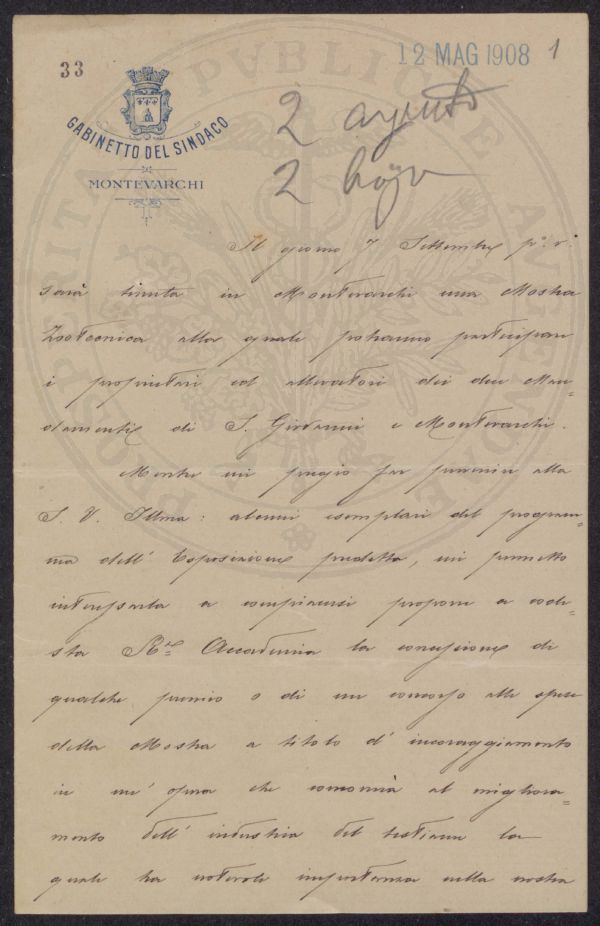 33
12 MAG 1908 1
GABINETTO DEL SINDACO
MONTEVARCHI
2 argento
2
Il giorno 7 Settembre p.v.
sarà tenuta in Montevarchi una Mostra
Zootecnica alla quale potranno partecipare
i proprietari ed allevatori dei due Man=
damenti di S. Giovanni e Montevarchi.
Mentre mi pregio far pervenire alla
S. V. Illma: alcuni esemplari del program=
ma dell' Esposizione predetta, mi permetto
interessarla a compiacersi proporre a code
sta Rle Accademia la concessione di
qualche premio o di un concorso alle spese
della Mostra a titolo d' incoraggiamento
in un' opera che al migliora=
mento dell' industria del bestiame la
quale ha notevole importanza nella nostra